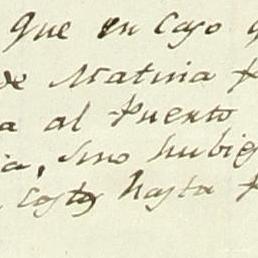 Que en Caso q
de Matina P
a al Puerto
ia, sino hubie
Costa hasta P